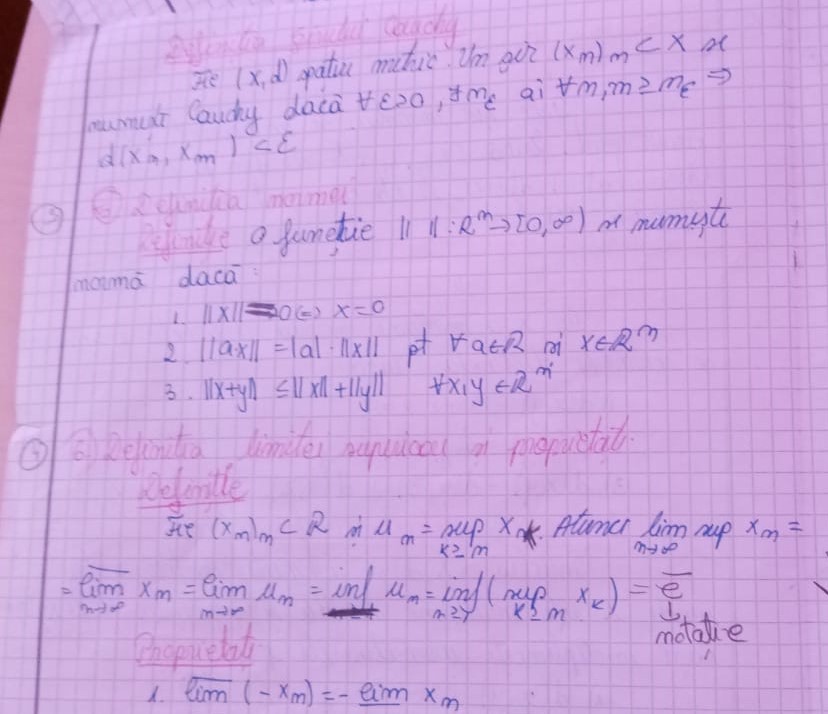 Definiția șirului Cauchy
Fie (X,d) spațiu metric. Un șir (x_n)_n ⊂ X se
numește Cauchy dacă ∀ε>0, ∃n_ε aî ∀m,n≥n_ε ⇒
d(x_n, x_m) <ε
⑤ ⑥ Definiția normei
Definiție O funcție || || : R^n→[0,∞) se numește
normă dacă:
1. ||x||=0(=) x=0
2. ||ax|| =|a|·||x|| pt ∀a∈R și x∈R^n
3. ||x+y|| ≤||x||+||y|| ∀x,y ∈R^n
6) Definiția limitei superioare și proprietăți.
Definiție
Fie (x_n)_n ⊂ R și u_n = sup_{k≥n} x_k. Atunci lim sup_{n→∞} x_n =
= \overline{lim}_{n→∞} x_n = lim_{n→∞} u_n = inf u_n = inf_{n≥1} (sup_{k≥n} x_k) = \overline{l}
↓
notație
Proprietăți
1. \overline{lim} (-x_n) = - \underline{lim} x_n